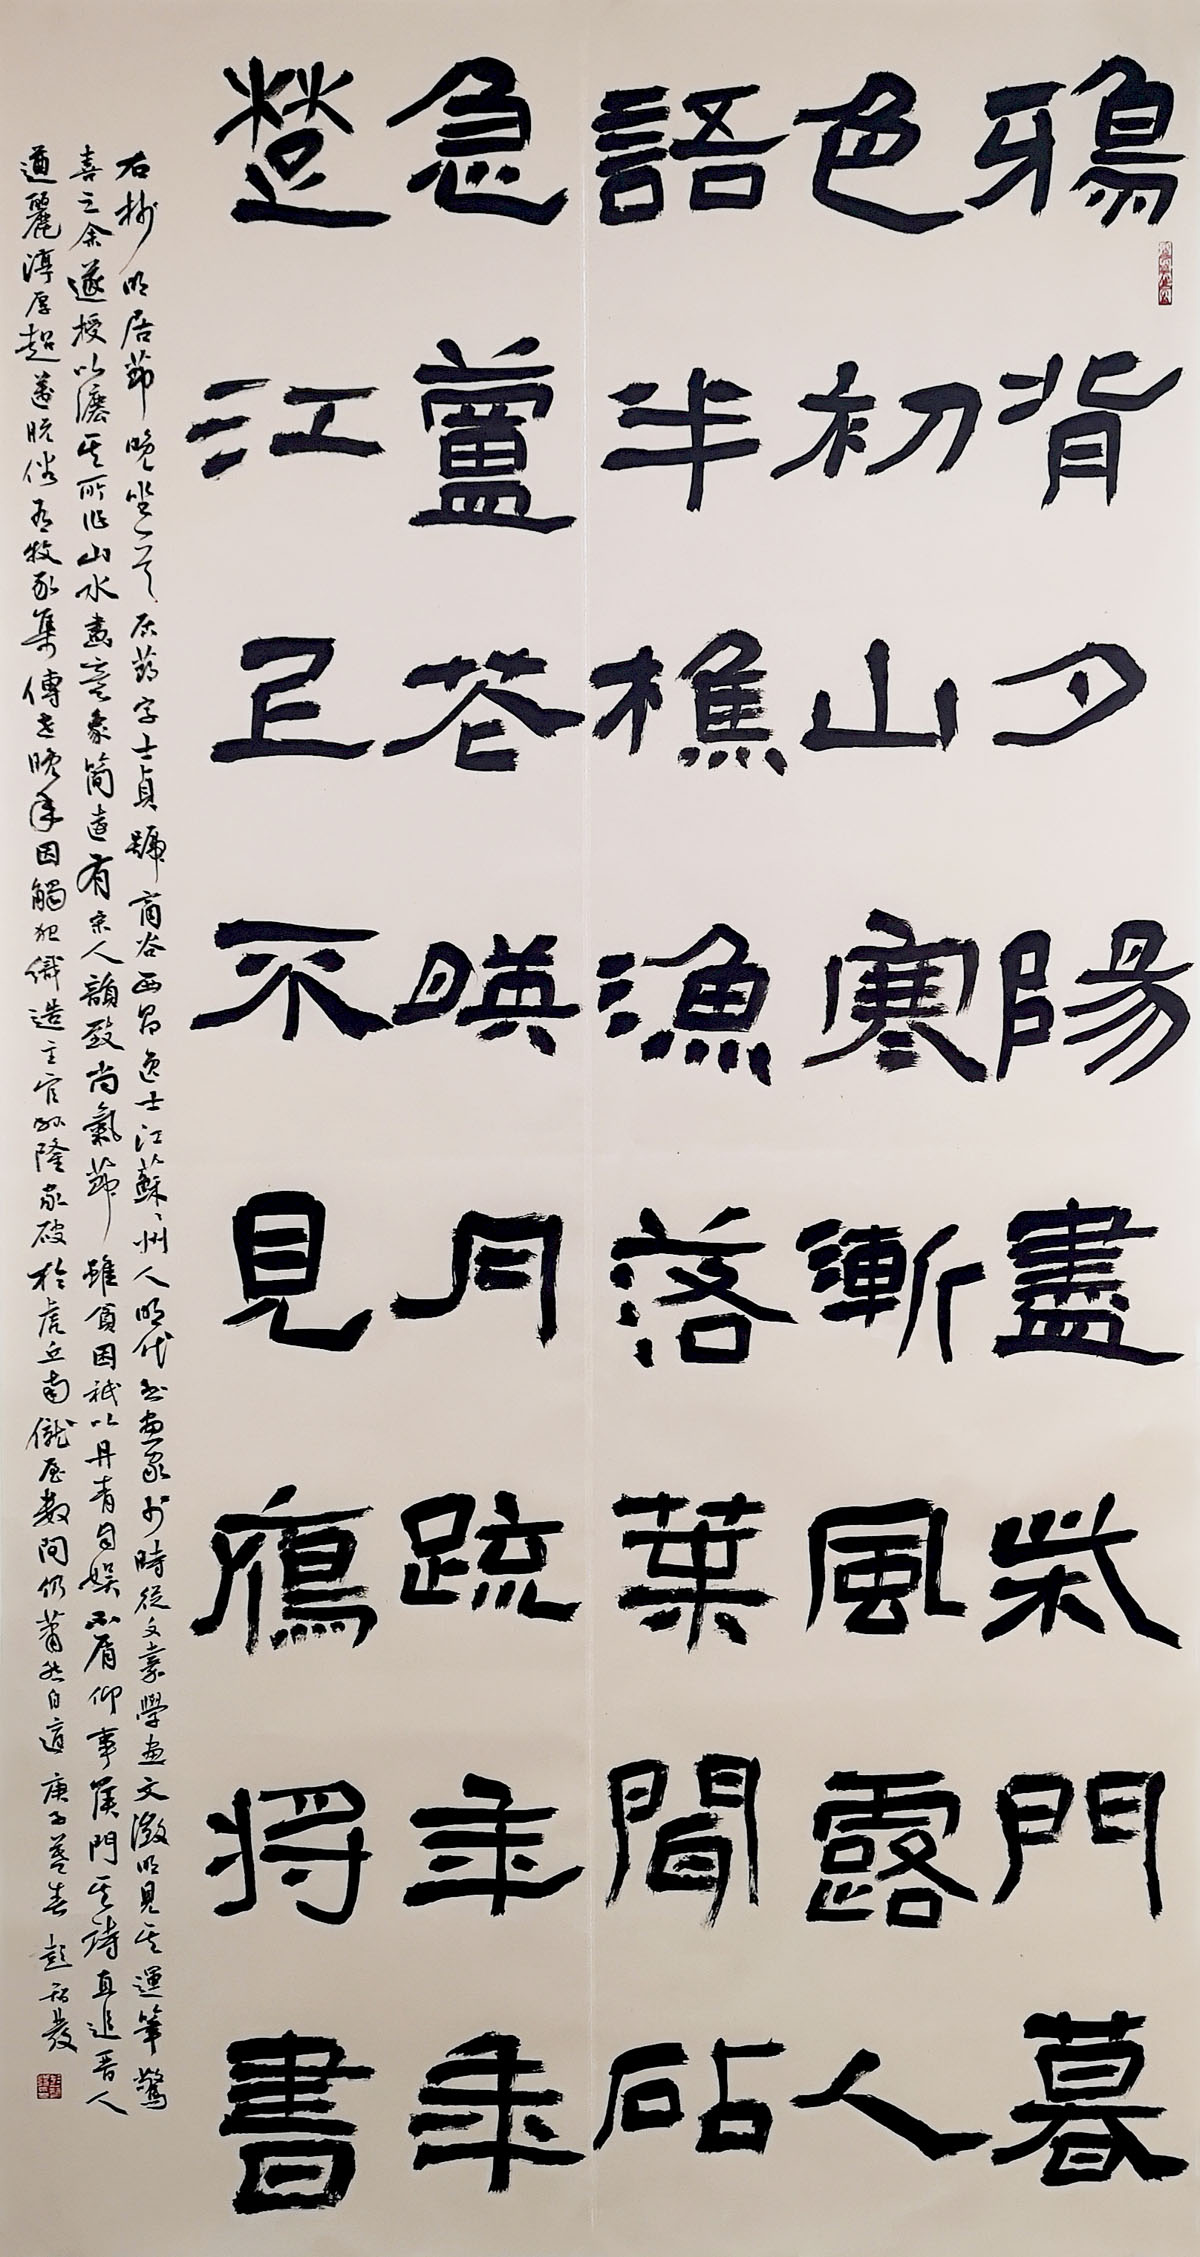 鴉背夕陽盡柴門暮
色初山寒漸風露人
語半樵漁落葉聞砧
急蘆花映月疏年年
楚江上不見鴈將書
右抄明居節晚坐一首居節字士貞號商谷西昌逸士江蘇蘇州人明代書畫家少時從文嘉學畫文徵明見其運筆驚
喜之余遂授以法其所作山水畫意象簡遠有宋人韻致尚氣節雖貧困祇以丹青自娛不屑仰事侯門其詩直追晉人
遒麗淳厚超邁脫俗有牧豕集傳世晚年因觸犯織造主官孫隆家破於虎丘南僦屋數間仍蕭然自適庚子暮春彭